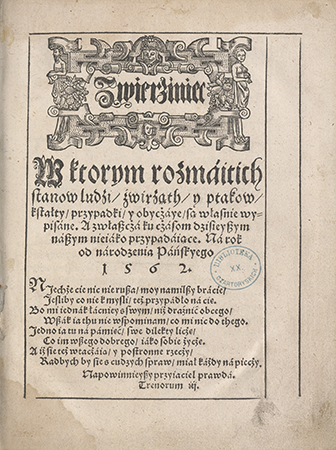 Zwierziniec
W ktorym rozmáitich
stanow ludzi/ źwirząth/ y ptakow/
kstałty/ przypadki/ y obyczáye/ są własnie wy-
pisáne. A zwłasczá ku cząsom dzisieyszym
nászym nieiáko przypadáiące. Ná rok
od národzenia Páńskyego
1562.
BIBLIOTEKA
XX.
CZARTORYSKICH
Niechże cie nic nie rusza/ moy namilszy brácie/
Jesliby co nie k mysli/ też przypádło ná cie.
Bo mi iednák łácniey s swym/ niż drażnić obcego/
Wszák ia thu nie wspominam/ co mi nic do thego.
Jedno ia tu ná pámięć/ swe dileky liczę/
Co im wszego dobrego/ iáko sobie życzę.
A iż się też wtaczáią/ y postronne rzeczy/
Radbych by sie s cudzych spraw/ miał káżdy ná pieczy.
Napowinnieyszy przyiaciel prawdá.
Trenorum iij.